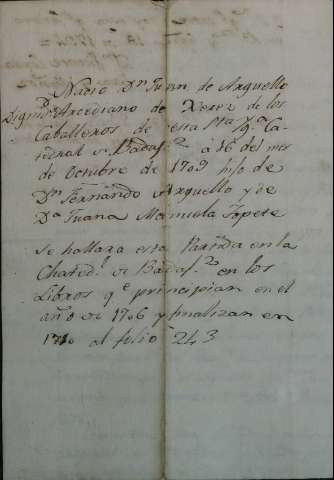 Nacio Dn Juan de Arguello
Dignid.d Arcediano de Xerez de los
Caballeros de esta Sta Yg.a Ca-
tedral de Badaj.z à 16 del mes
de Octubre de 1709 hijo de
Dn Fernando Arguello y de
Da Juana Manuela Topete
Se hallara esta Partida en la
Cated.l de Badaj.z en los
Libros q.e principian en el
año de 1706 y finalizan en
al folio 243